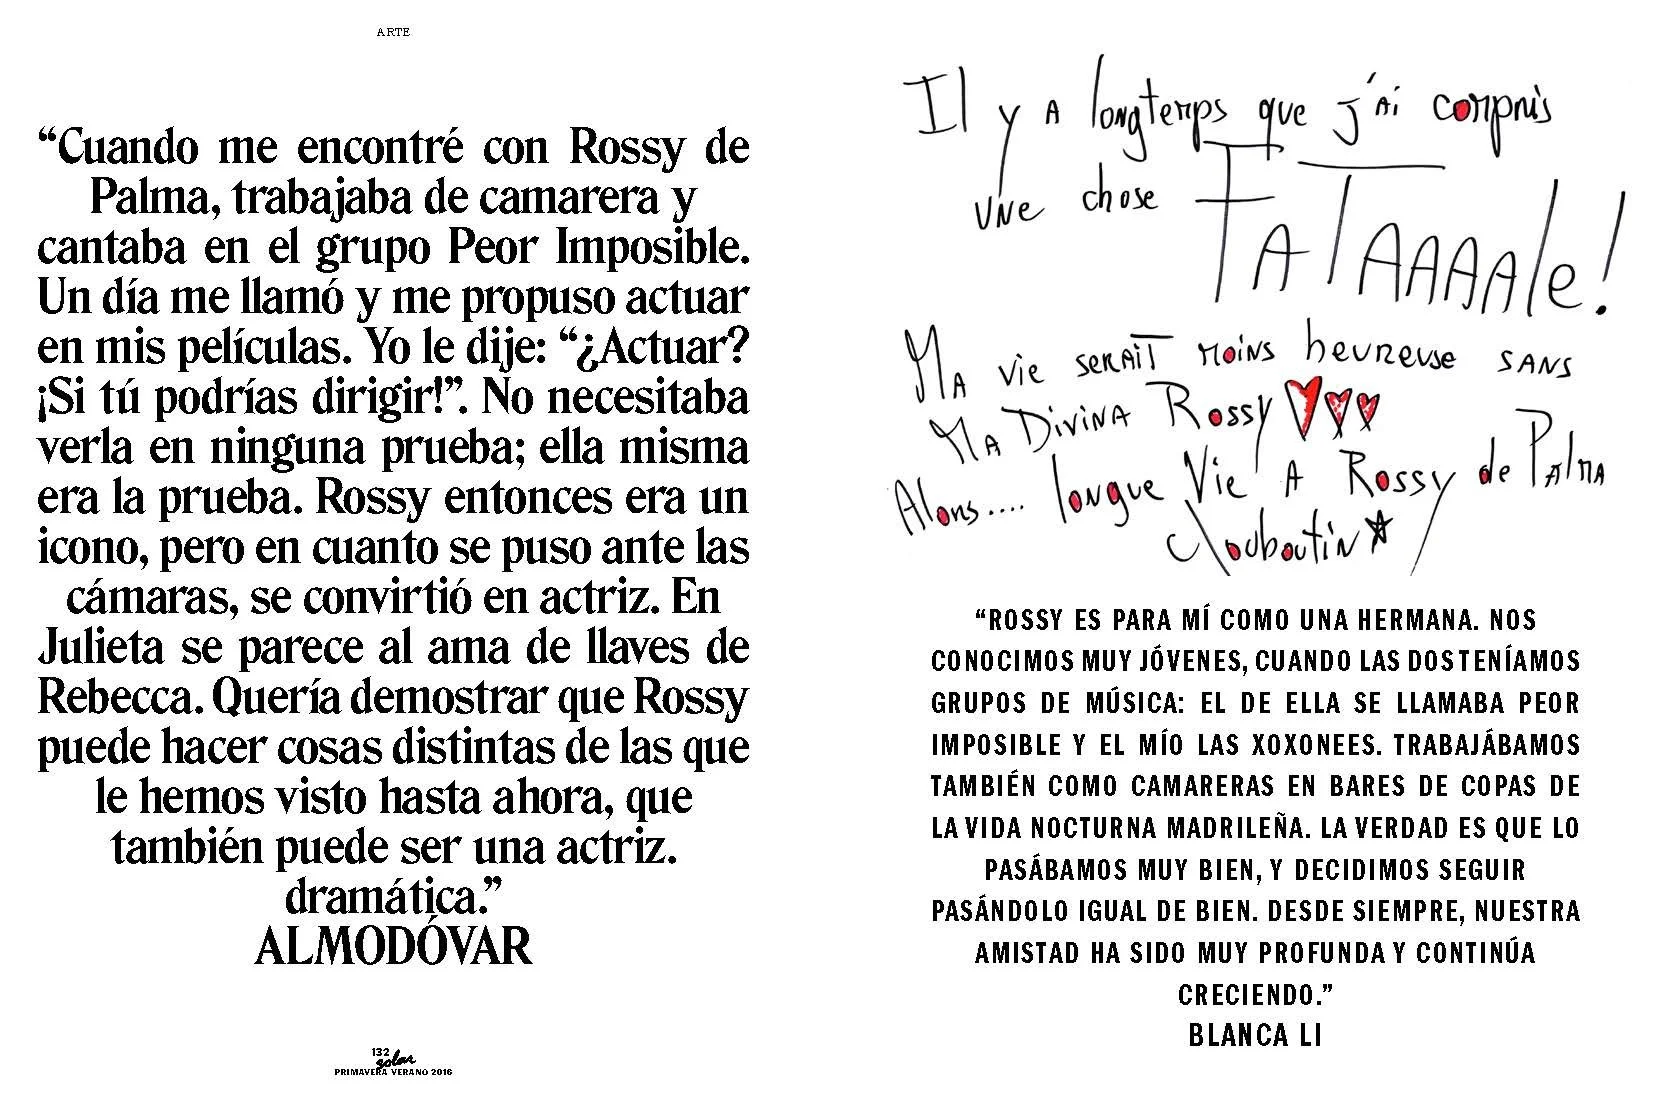 ARTE
“Cuando me encontré con Rossy de
Palma, trabajaba de camarera y
cantaba en el grupo Peor Imposible.
Un día me llamó y me propuso actuar
en mis películas. Yo le dije: “¿Actuar?
¡Si tú podrías dirigir!”. No necesitaba
verla en ninguna prueba; ella misma
era la prueba. Rossy entonces era un
icono, pero en cuanto se puso ante las
cámaras, se convirtió en actriz. En
Julieta se parece al ama de llaves de
Rebecca. Quería demostrar que Rossy
puede hacer cosas distintas de las que
le hemos visto hasta ahora, que
también puede ser una actriz.
dramática.”
ALMODÓVAR
132
solar
PRIMAVERA VERANO 2016
Il y A longtemps que j'Ai compris
UNe chose FATAAAAle!
MA vie seRAiT moiNs heureuse SANS
MA DiviNA Rossy
Alons.... longue Vie A Rossy de PAlmA
Louboutin
“ROSSY ES PARA MÍ COMO UNA HERMANA. NOS
CONOCIMOS MUY JÓVENES, CUANDO LAS DOS TENÍAMOS
GRUPOS DE MÚSICA: EL DE ELLA SE LLAMABA PEOR
IMPOSIBLE Y EL MÍO LAS XOXONEES. TRABAJÁBAMOS
TAMBIÉN COMO CAMARERAS EN BARES DE COPAS DE
LA VIDA NOCTURNA MADRILEÑA. LA VERDAD ES QUE LO
PASÁBAMOS MUY BIEN, Y DECIDIMOS SEGUIR
PASÁNDOLO IGUAL DE BIEN. DESDE SIEMPRE, NUESTRA
AMISTAD HA SIDO MUY PROFUNDA Y CONTINÚA
CRECIENDO.”
BLANCA LI